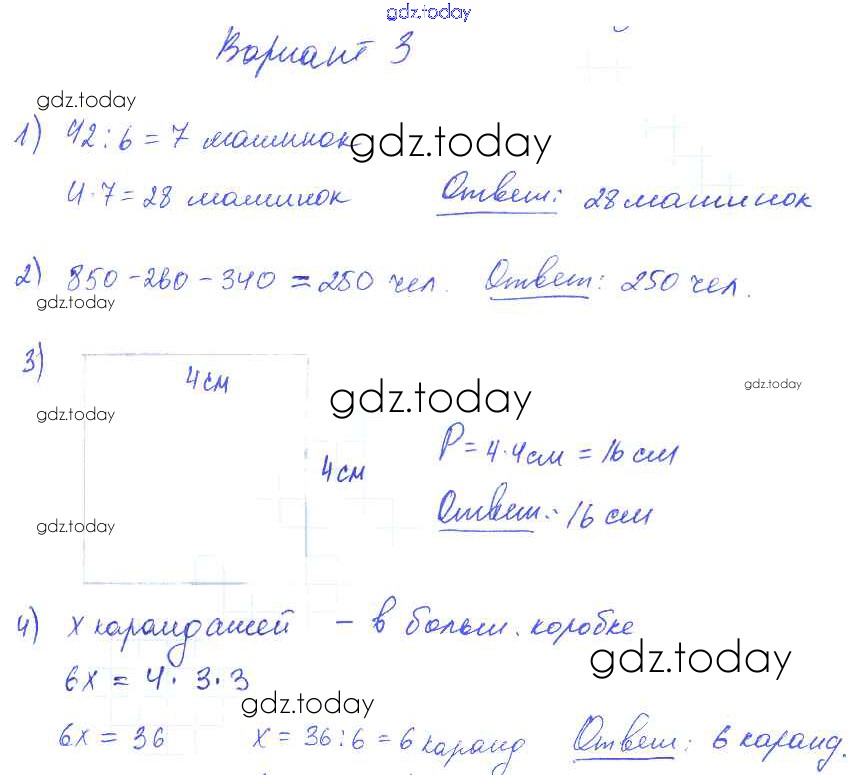 gdz.today
Вариант 3
gdz.today
1) 42 : 6 = 7 машинок gdz.today
4 · 7 = 28 машинок Ответ: 28 машинок
2) 850 - 260 - 340 = 250 чел. Ответ: 250 чел.
gdz.today
3)
4 см
gdz.today
gdz.today
gdz.today
P = 4 · 4 см = 16 см
4 см
Ответ: 16 см
gdz.today
4) x карандашей - в больш. коробке
gdz.today
6x = 4 · 3 · 3
gdz.today
6x = 36 x = 36 : 6 = 6 каранд Ответ: 6 каранд.